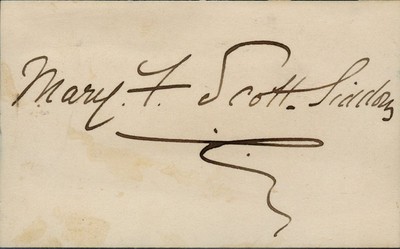 Mary. F. Scott-Siddons